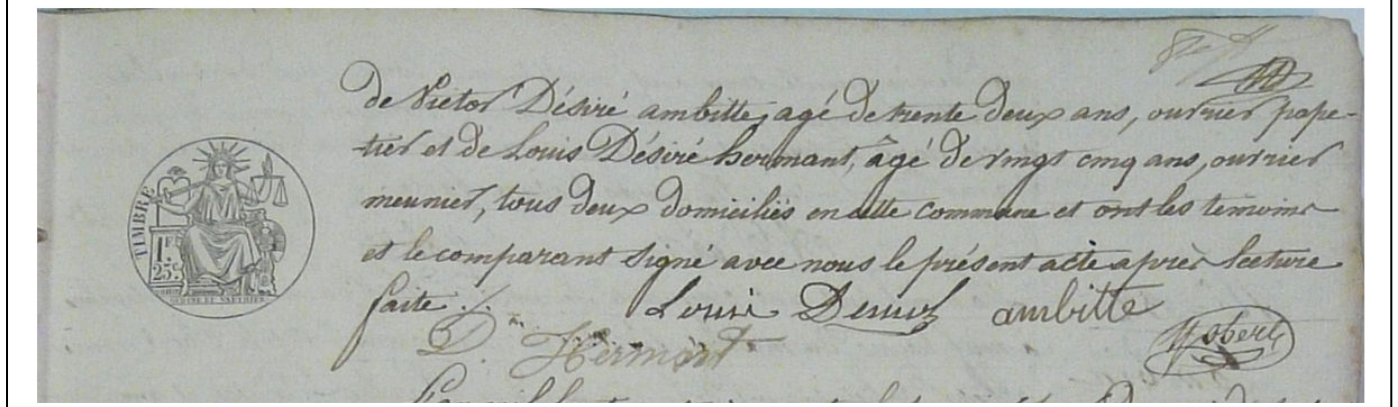 de Victor Désiré ambitte, agé de trente deux ans, ouvrier pape-
tier et de Louis Désiré hermant, âgé de vingt cinq ans, ouvrier
meunier, tous deux domiciliés en cette commune et ont les temoins
et le comparant signé avec nous le présent acte après lecture
faite ./.
Louis ambitte
D. Hermant
TIMBRE
1F.
25c.